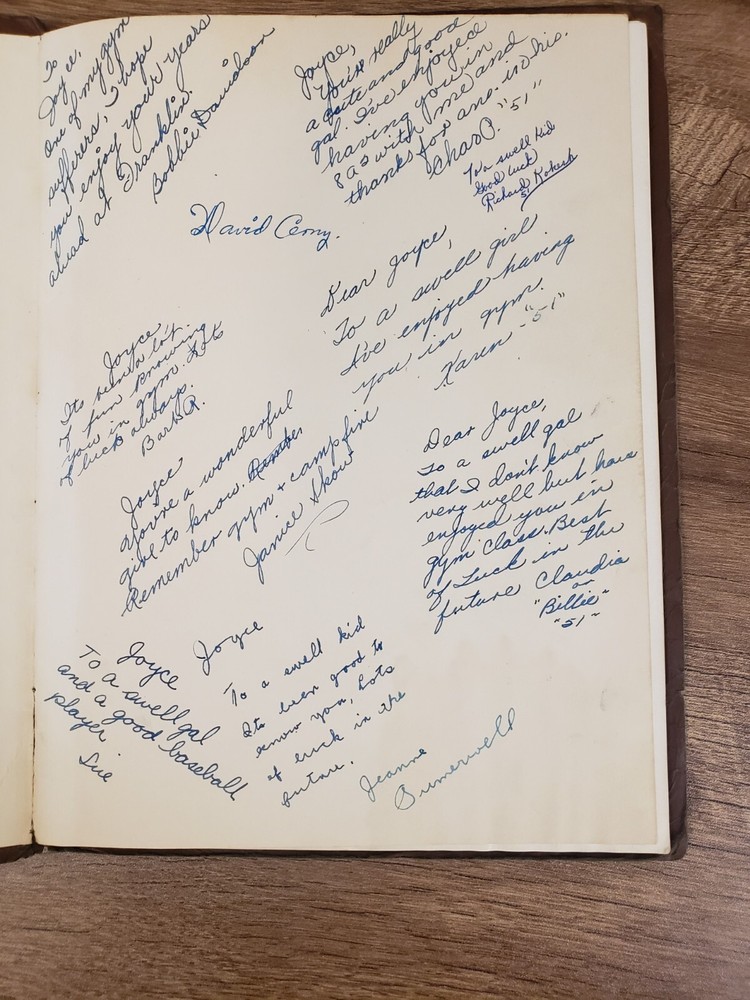 To
Joyce,
One of my gym
sufferers, I hope
you enjoy your years
ahead at Franklin.
Bobbie Davidson
Joyce,
You're really
a cute and good
gal. I've enjoyed
having you in
8 A 3 with me and
thanks for ans. in his.
Char P. "51"
To a swell kid
Good luck
Richard Rokusek
51
David Cerny.
Dear Joyce,
To a swell girl
I've enjoyed having
you in gym.
Karen - "51"
Joyce
Its been a lot
of fun knowing
you in gym. Lots
of luck always.
Barb R.
Joyce
You're a wonderful
girl to know.
Remember gym + campfire
Janice Skow
Dear Joyce,
To a swell gal
that I don't know
very well but have
enjoyed you in
gym class. Best
of Luck in the
future Claudia
or
"Billie"
"51"
Joyce
To a swell gal
and a good baseball
player
Sue
Joyce
To a swell kid
Its been good to
know you, Lots
of luck in the
future.
Jeanne